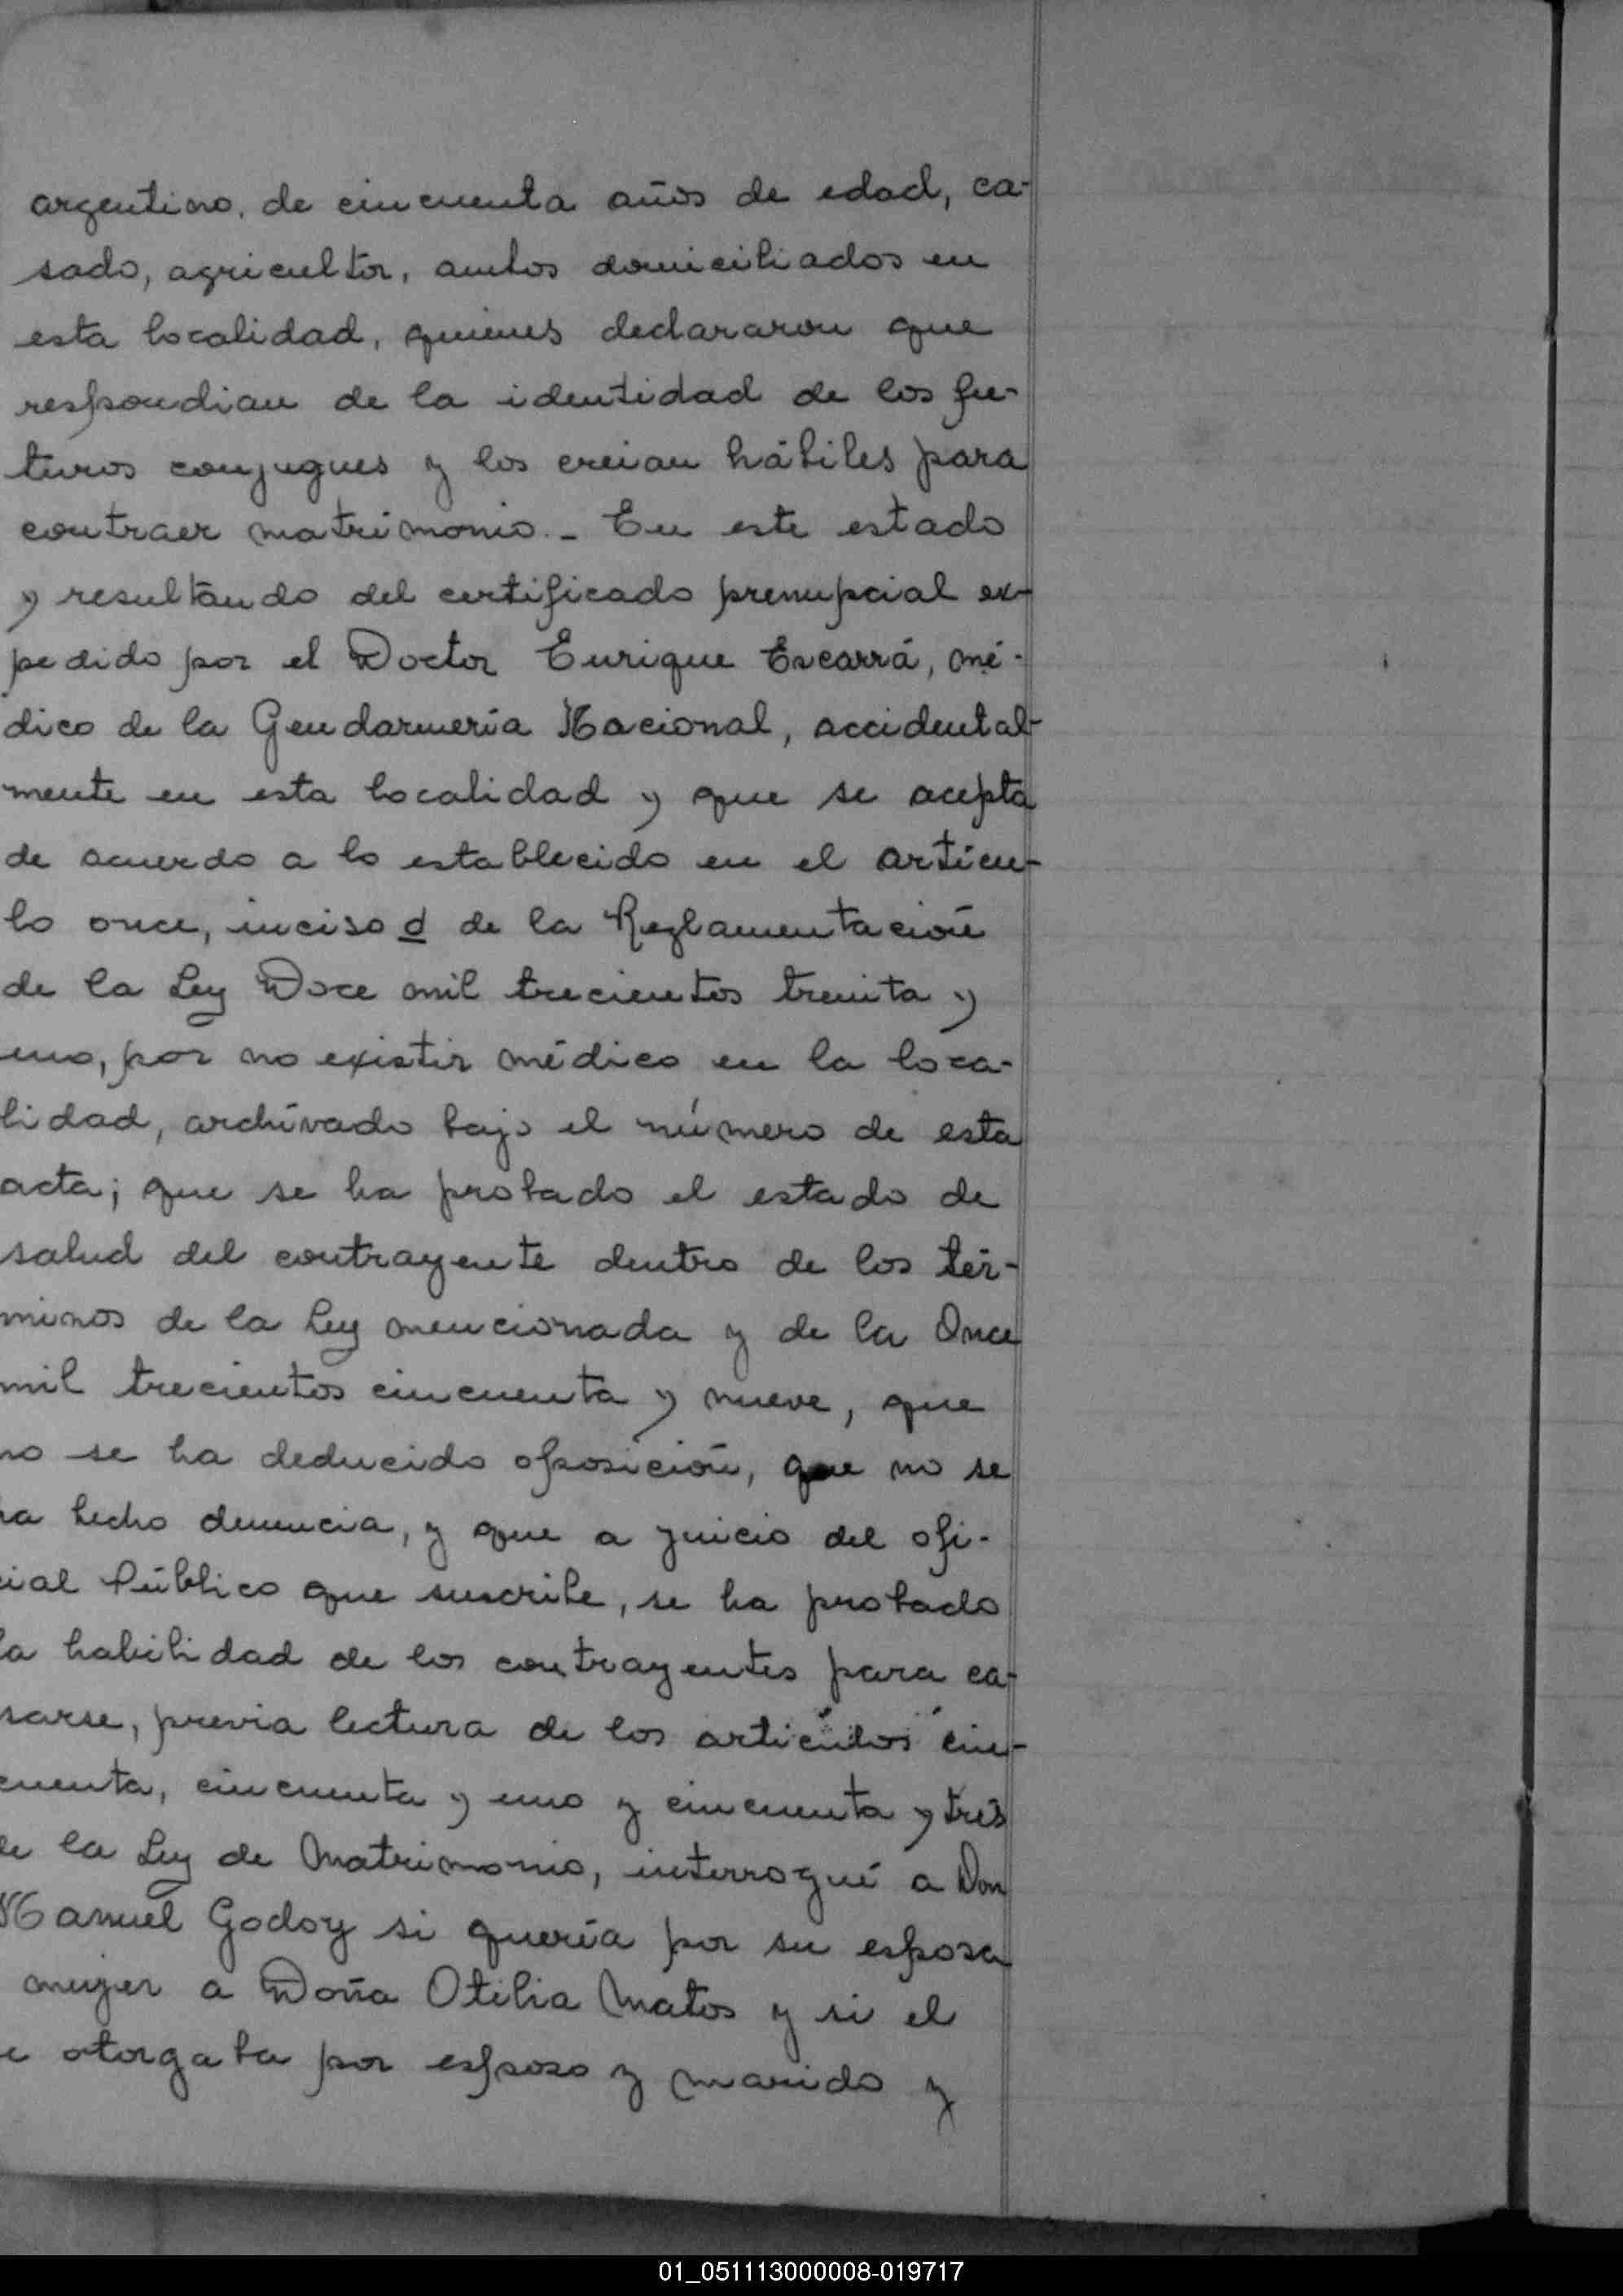 argentino, de cincuenta años de edad, ca-
sado, agricultor, ambos domiciliados en
esta localidad, quienes declararon que
respondian de la identidad de los fu-
turos conjugues y los creian hábiles para
contraer matrimonio.- En este estado
y resultando del certificado prenupcial ex-
pedido por el Doctor Enrique Escarrá, mé-
dico de la Gendarmería Nacional, accidental-
mente en esta localidad y que se acepta
de acuerdo a lo establecido en el artícu-
lo once, inciso d de la Reglamentación
de la Ley Doce mil trecientos treinta y
uno, por no existir médico en la loca-
lidad, archivado bajo el número de esta
acta; que se ha probado el estado de
salud del contrayente dentro de los tér-
minos de la Ley mencionada y de la Once
mil trecientos cincuenta y nueve, que
no se ha deducido oposición, que no se
ha hecho denuncia, y que a juicio del ofi-
cial Público que suscribe, se ha probado
la habilidad de los contrayentes para ca-
sarse, previa lectura de los artículos cin-
cuenta, cincuenta y uno y cincuenta y tres
de la Ley de Matrimonio, interrogué a Don
Manuel Godoy si quería por su esposa
mujer a Doña Otilia Matos y si el
e otorgaba por esposo y marido y
01_051113000008-019717